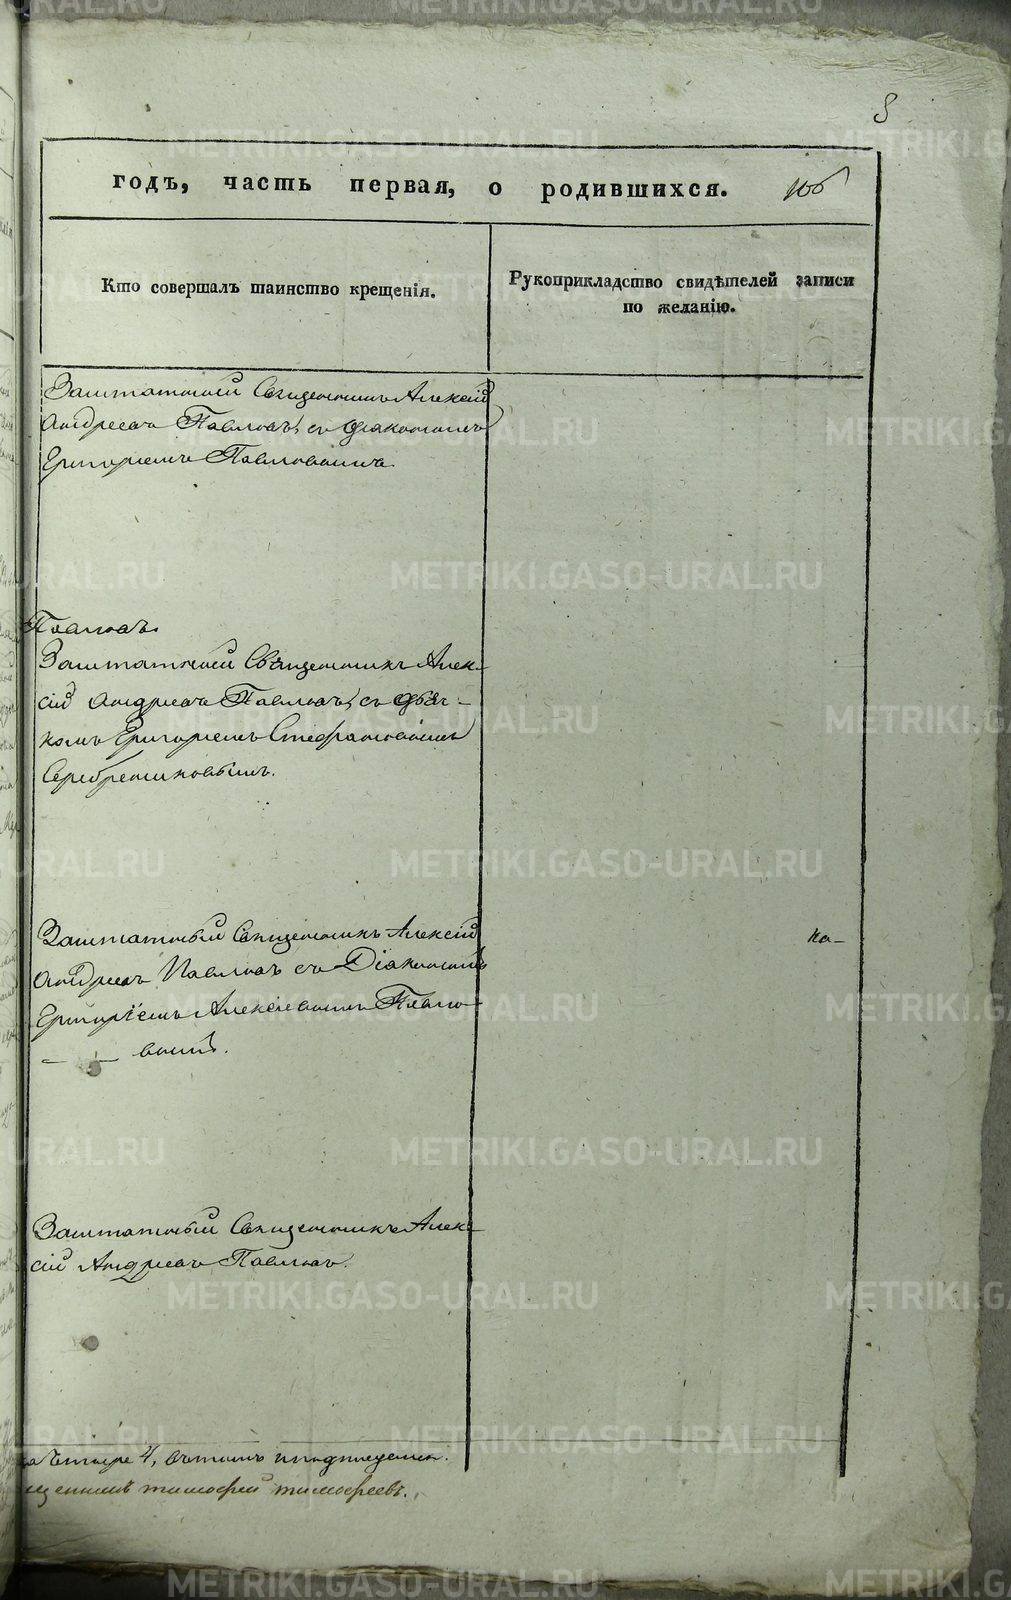 годъ, часть первая, о родившихся.
Кто совершалъ таинство крещенія.
Рукоприкладство свидѣтелей записи
по желанію.
Заштатный Священникъ Алексій
Андреевъ Павловъ, съ Діакономъ
Григоріемъ Павловымъ.
Павловъ.
Заштатный Священникъ Алек-
сій Андреевъ Павловъ, съ дьяч-
комъ Григоріемъ Стефановымъ
Серебрениковымъ.
Заштатный Священникъ Алексій
Андреевъ Павловъ съ Діакономъ
Григоріемъ Алексіевымъ Павло-
вымъ.
Ка-
Заштатный Священникъ Алек-
сій Андреевъ Павловъ.
четыре 4, въ томъ
Тимофей Тимофеевъ.
METRIKI.GASO-URAL.RU